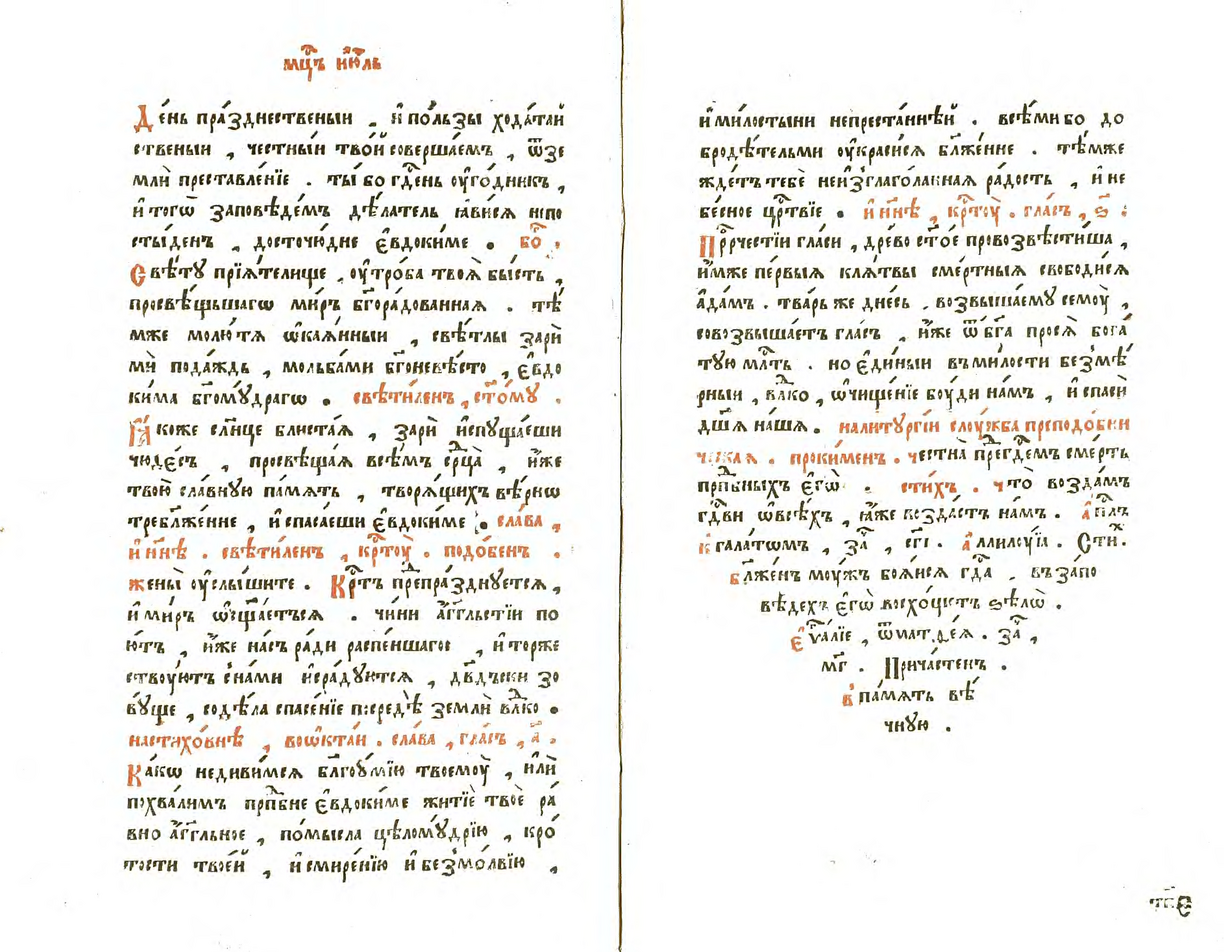 мцⷭ҇ъ і҆ю́ль
Де́нь пра́зднественыи , и҆ по́льзы хода́таи
ственыи , че́стныи тво́й соверша́емъ , ѿзе
млѝ преставле́нїе . ты́ бо гдⷭ҇ень оу҆го́дникъ ,
и҆ тогѡ̀ за́поведемъ дѣ́латель ꙗ҆ви́сѧ непо
сты́денъ , досточю́дне є҆вдоки́ме . боⷢ҇ .
Свѣ́ту прїѧ́телище , оу҆тро́ба твоѧ̀ бы́сть ,
просвѣ́щьшагѡ ми́ръ бг҃ора́дованнаѧ . тѣ́
мже молю́тѧ ѡ҆каѧ́нныи , свѣ́тлы зарѝ
мѝ пода́ждь , мольба́ми бг҃оневѣ́сто , є҆вдо
ки́ма бг҃ому́драгѡ . свѣти́ленъ , ст҃о́му .
Ꙗ҆́коже сл҃нце блиста́ѧ , зарѝ и҆спуща́еши
чюде́съ , просвѣща́ѧ всѣ́мъ срⷣца̀ , и҆́же
твою̀ сла́вную па́мѧть , творѧ́щихъ вѣ́рнѡ
требл҃же́нне , и҆ спаса́еши є҆вдоки́ме . сла́ва ,
и҆ ны́нѣ . свѣти́ленъ , крⷭ҇тоу̀ . подо́бенъ .
жены̀ оу҆слы́шите . Крⷭ҇тъ препра́зднуетсѧ ,
и҆ ми́ръ ѡ҆сщ҃а́етъсѧ . чи́ни а҆́гг҃льстїи по
ю́тъ , и҆́же на́съ ра́ди распе́ншагос , и҆ торже
ству́ютъ сна́ми и҆ ра́дуютсѧ , дв҃дъски зо
ву́ще , содѣ́ла спасе́нїе посредѣ̀ землѝ влⷣко .
настихо́внѣ , воѡ҆кта́и . сла́ва , гла́съ , а҃ .
Ка́кѡ недиви́мсѧ бл҃гоу́мїю твоемоу̀ , и҆лѝ
похва́лимъ прпⷣбне є҆вдоки́ме житїѐ твоѐ ра́
вно а҆́гг҃льное , по́мысла цѣлому́дрїю , кро́
тости твое́й , и҆ смире́нїю и҆ безмо́лвїю ,
и҆ ми́лостыни непреста́ннѣй . всѣ́ми бо до
бродѣ́тельми оу҆краси́сѧ бл҃же́нне . тѣ́мже
жде́тъ тебѐ неизглаго́ланнаѧ ра́дость , и҆ не
бе́сное црⷭ҇твїе . и҆ ны́нѣ , крⷭ҇тоу̀ . гла́съ , ѕ҃ :
Прⷪ҇рчестїи гла́си , дре́во ст҃о́е провозвѣсти́ша ,
и҆́мже пе́рвыѧ клѧ́твы сме́ртныѧ свободи́сѧ
а҆да́мъ . тва́рь же дне́сь , возвыша́ему семоу̀ ,
совозвыша́етъ гла́съ , и҆́же ѿ бг҃а просѧ̀ бога́
тую млⷭ҇ть . но є҆ди́ныи въ ми́лости безмѣ́
рныи , влⷣко , ѡ҆чище́нїе бо́уди на́мъ , и҆ спасѝ
дш҃а на́шѧ . налитургі́и слоу́жба преподо́бни
ческаѧ . проки́менъ . честна̀ прегⷣемъ сме́рть
прпⷣбныхъ є҆гѡ̀ . сти́хъ . что̀ возда́мъ
гдⷭ҇ви ѡ҆ всѣ́хъ , ꙗ҆́же возда́стъ на́мъ . а҆пⷭ҇лъ
к гала́тѡмъ , заⷱ҇ , сг҃і . а҆ллилоу́їа . Стиⷯ .
бл҃же́нъ моу́жъ боѧ́исѧ гдⷭ҇а , въ за́по
вѣдехъ є҆гѡ̀ восхо́щетъ ѕѣлѡ̀ .
є҆ѵⷢ҇а́лїе , ѿ матѳе́ѧ . заⷱ҇ ,
мг҃ . Прича́стенъ .
в па́мѧть вѣ́
чную .